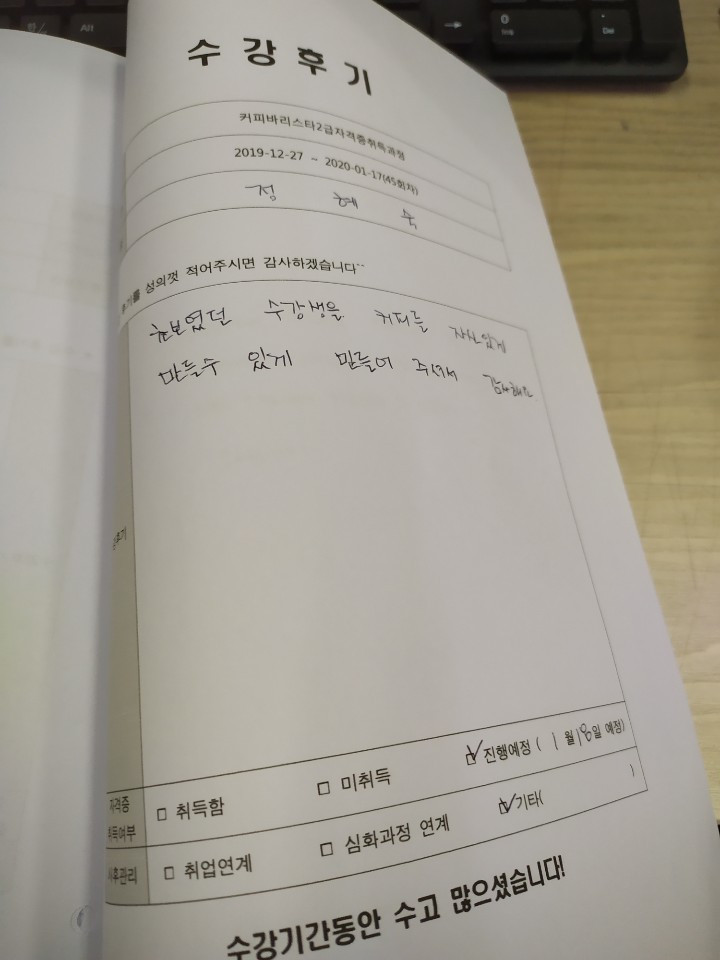 수강후기
커피바리스타2급자격증취득과정
2019-12-27 ~ 2020-01-17(45회차)
정 혜 숙
후기를 성의껏 적어주시면 감사하겠습니다~~
초보였던 수강생을 커피를 자신있게
만들수 있게 만들어 주셔서 감사해요
강후기
자격증
취득여부
□ 취득함 □ 미취득 ☑ 진행예정 ( 1 월 18일 예정)
사후관리
□ 취업연계 □ 심화과정 연계 ☑ 기타( )
수강기간동안 수고 많으셨습니다!
Alt
0
Ins
Del